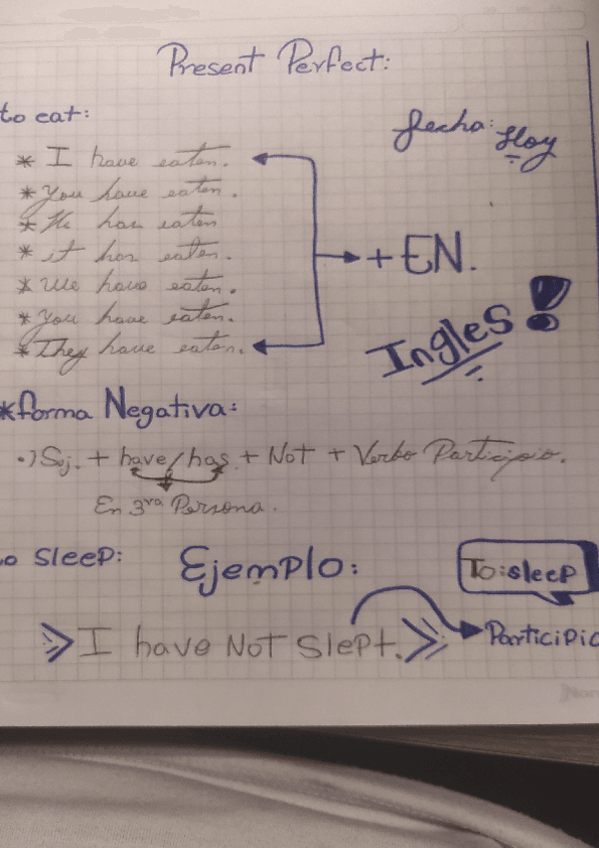 Present Perfect:
to eat:
fecha: Hoy
* I have eaten.
* You have eaten.
* He has eaten
* it has eaten.
* We have eaten.
* You have eaten.
* They have eaten.
+ EN.
Ingles!
*forma Negativa:
•) Suj. + have/has + Not + Verbo Participio.
En 3ra Persona.
o sleep:
Ejemplo:
To:sleep
I have Not Slept.
Participio